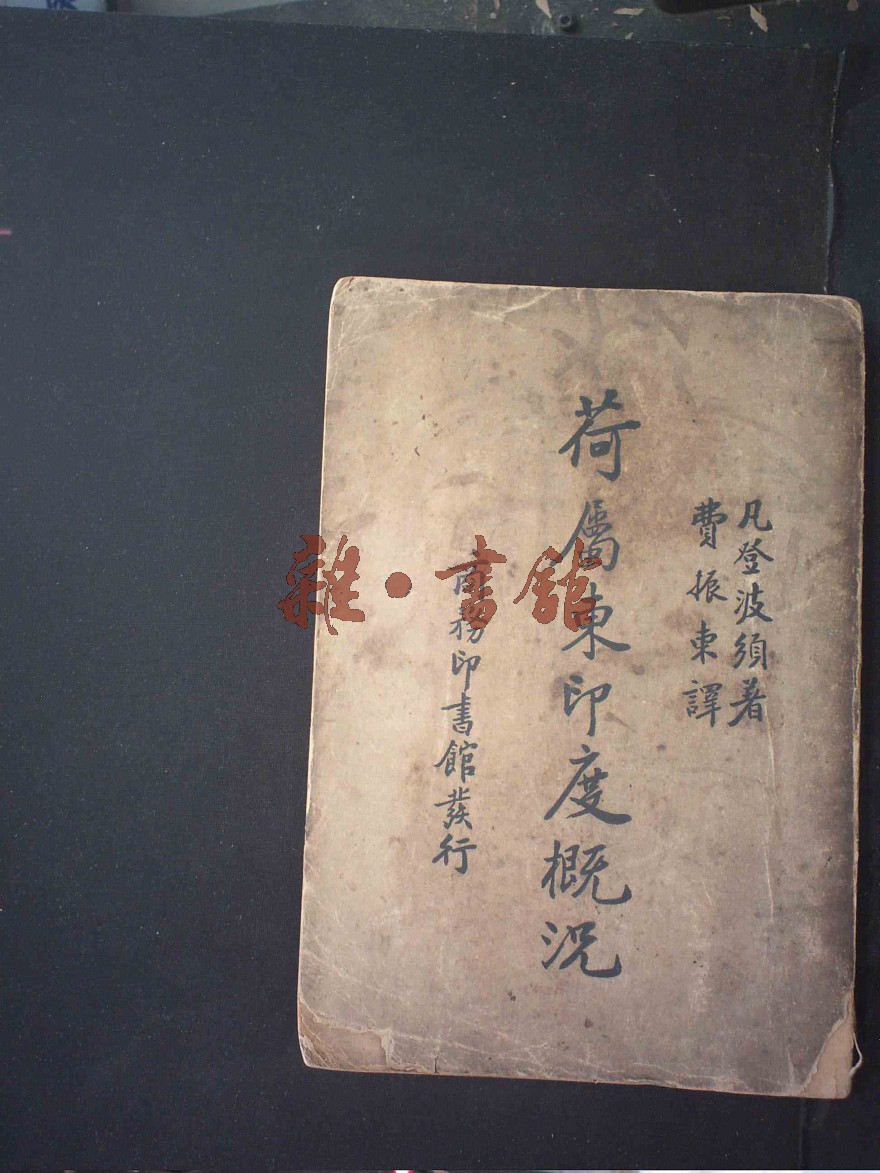 凡登波須著
費振東譯
荷屬東印度概況
商務印書館發行
雜·書館